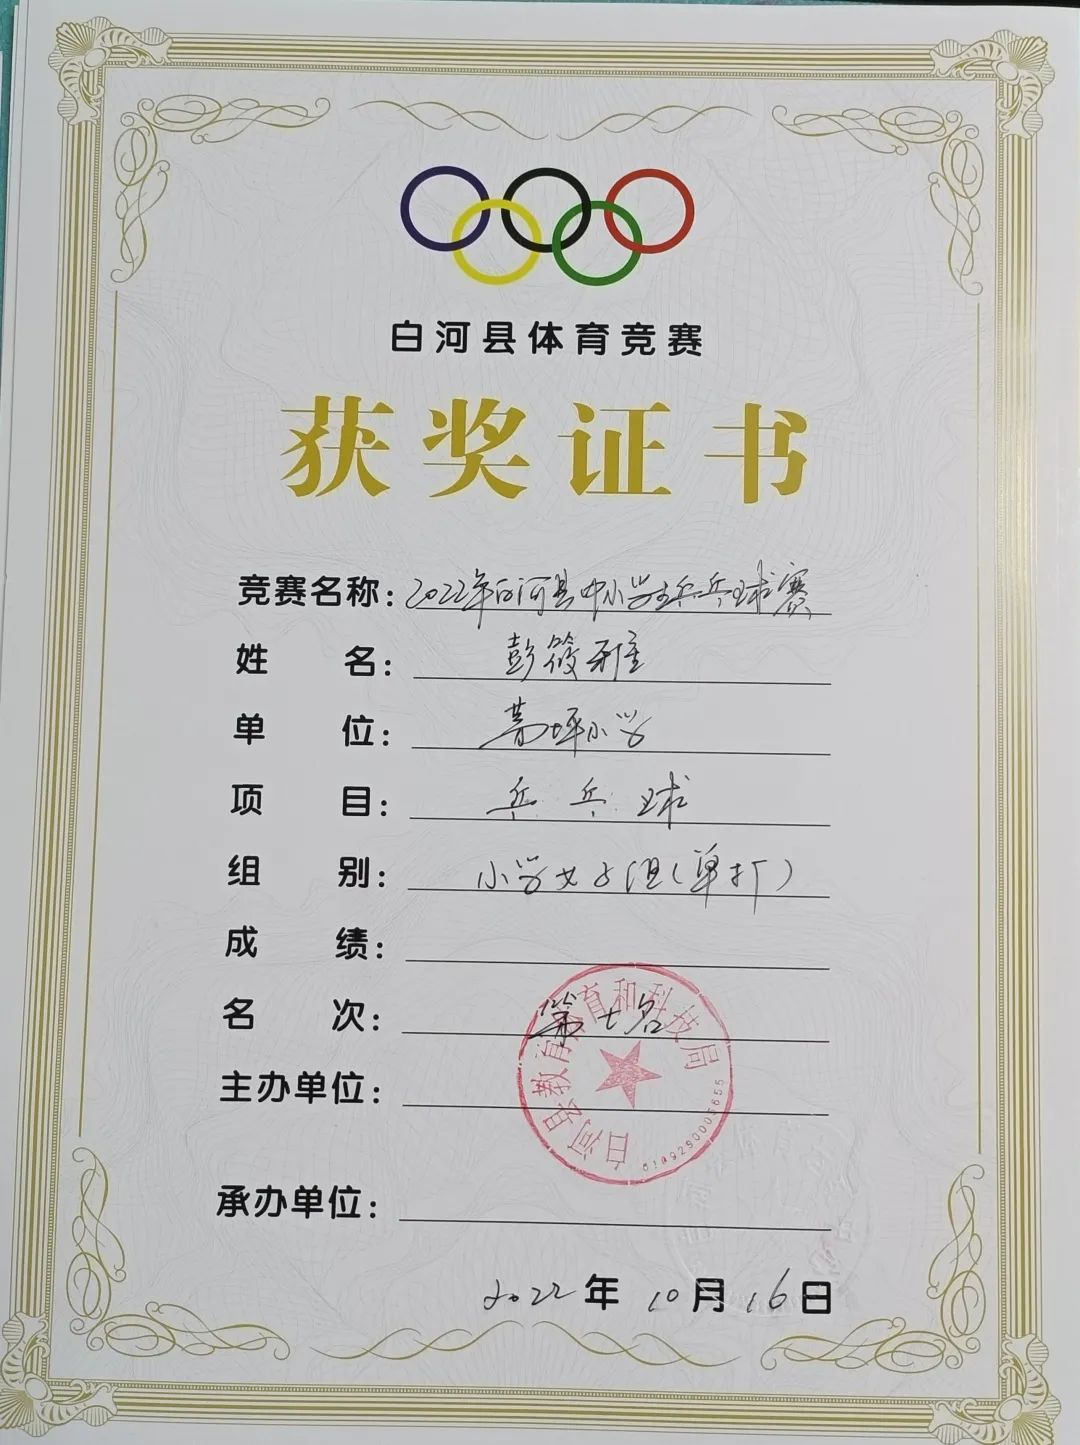 白河县体育竞赛
获奖证书
竞赛名称：2022年白河县中小学生乒乓球赛
姓 名：彭筱雅
单 位：茅坪小学
项 目：乒乓球
组 别：小学女子组（单打）
成 绩：
名 次：第七名
主办单位：
白河县教育体育和科技局
6109290005655
承办单位：
2022年10月16日